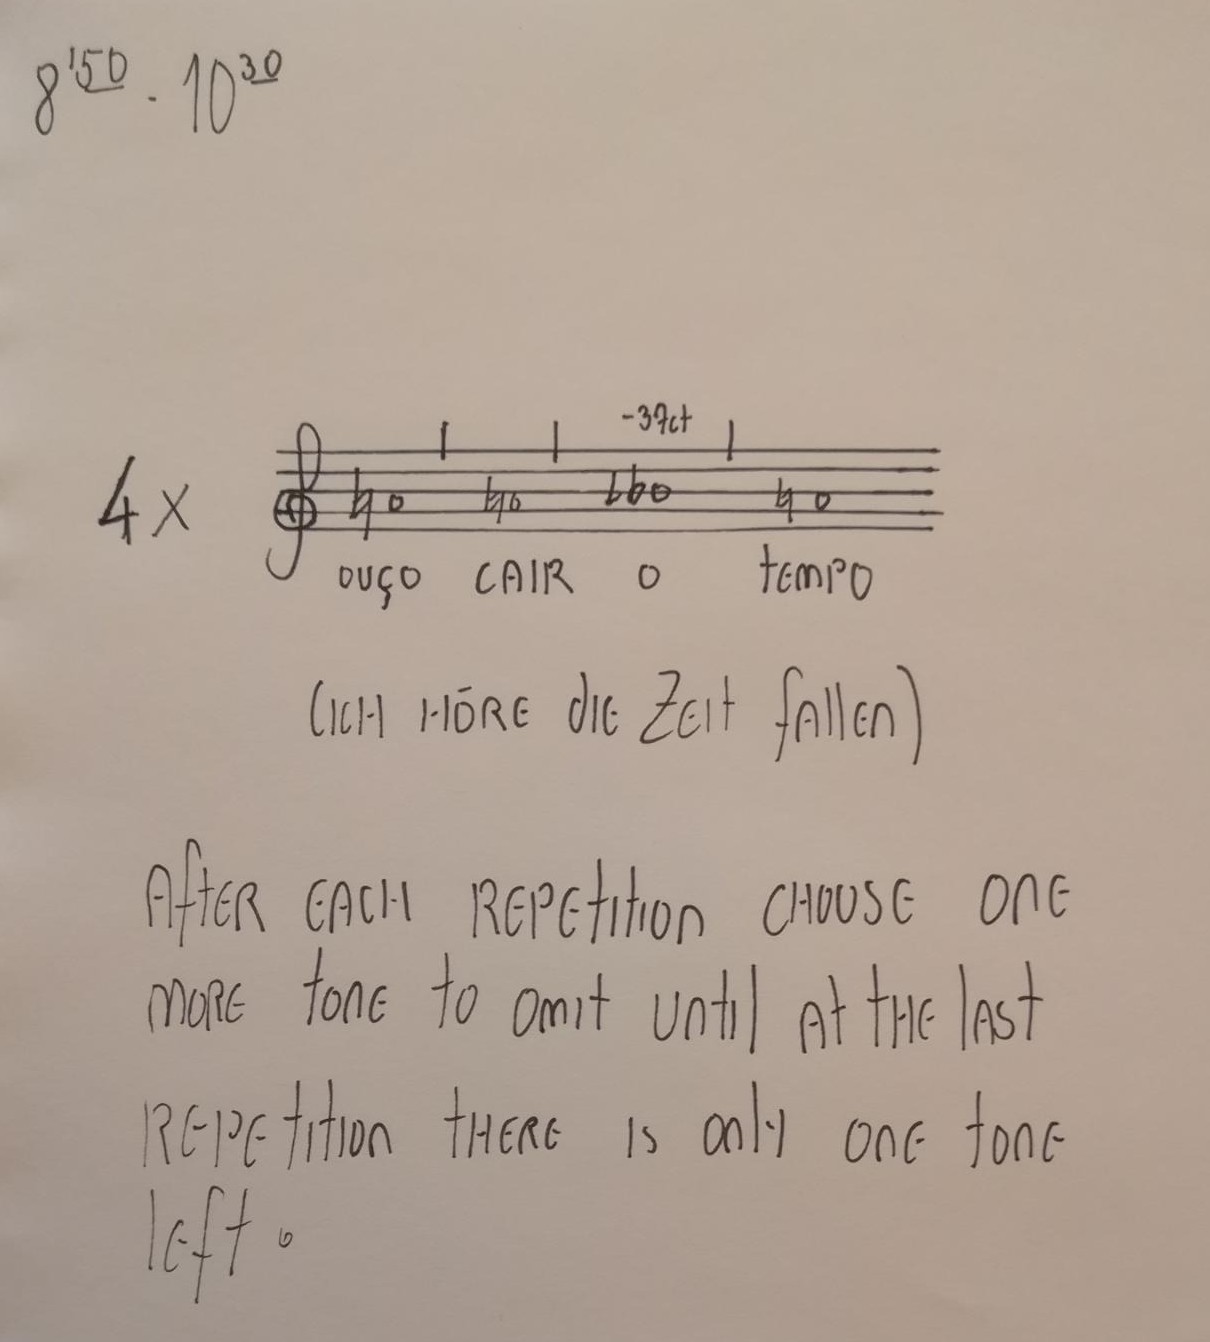 8'50 - 10 30
-37ct
4x
OUÇO CAIR O tEMPO
(ICH HÖRE diE ZEit fAllEn)
AftER EACH REPEtition CHOOSE onE
moRE tonE to omit until At tHE lAst
REPEtition tHERE is only onE tonE
lEft.